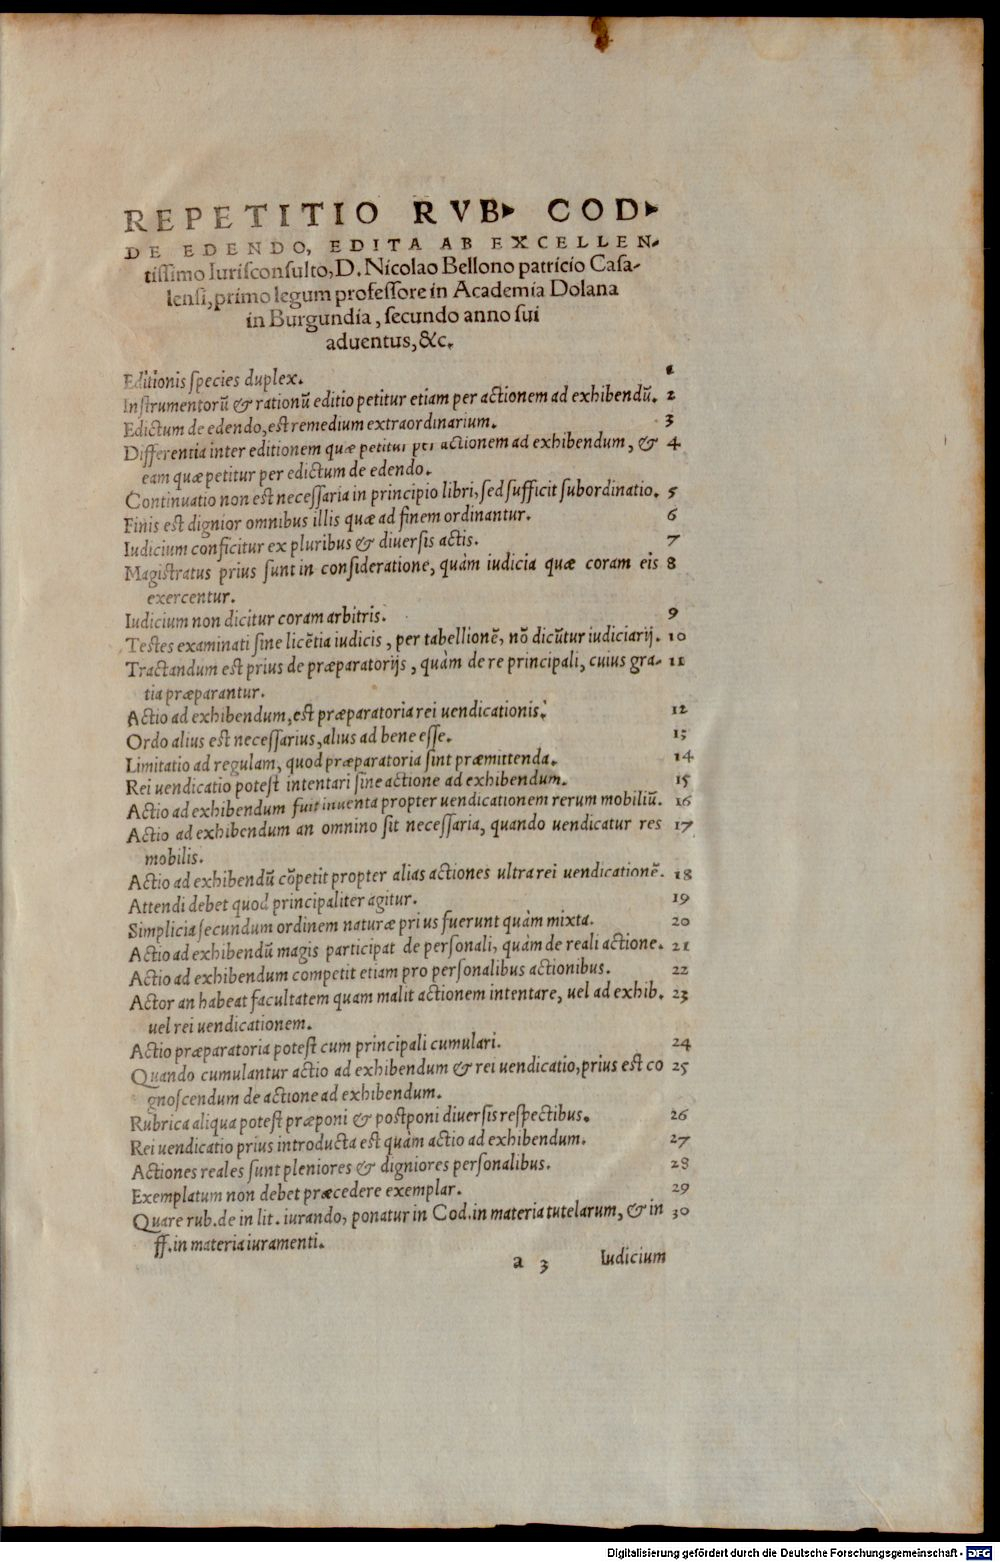 REPETITIO RVB. COD.
DE EDENDO, EDITA AB EXCELLEN-
tissimo Iurisconsulto, D. Nicolao Bellono patricio Casa-
lensi, primo legum professore in Academia Dolana
in Burgundia, secundo anno sui
aduentus, &c.
Editionis species duplex. 1
Instrumentorũ & rationũ editio petitur etiam per actionem ad exhibendũ. 2
Edictum de edendo, est remedium extraordinarium. 3
Differentia inter editionem quæ petitur per actionem ad exhibendum, & 4
eam quæ petitur per edictum de edendo.
Continuatio non est necessaria in principio libri, sed sufficit subordinatio. 5
Finis est dignior omnibus illis quæ ad finem ordinantur. 6
Iudicium conficitur ex pluribus & diuersis actis. 7
Magistratus prius sunt in consideratione, quàm iudicia quæ coram eis 8
exercentur.
Iudicium non dicitur coram arbitris. 9
Testes examinati sine licẽtia iudicis, per tabellionẽ, nõ dicũtur iudiciarij. 10
Tractandum est prius de præparatorijs, quàm de re principali, cuius gra- 11
tia præparantur.
Actio ad exhibendum, est præparatoria rei uendicationis. 12
Ordo alius est necessarius, alius ad bene esse. 13
Limitatio ad regulam, quod præparatoria sint præmittenda. 14
Rei uendicatio potest intentari sine actione ad exhibendum. 15
Actio ad exhibendum fuit inuenta propter uendicationem rerum mobiliũ. 16
Actio ad exhibendum an omnino sit necessaria, quando uendicatur res 17
mobilis.
Actio ad exhibendũ cõpetit propter alias actiones ultra rei uendicationẽ. 18
Attendi debet quod principaliter agitur. 19
Simplicia secundum ordinem naturæ prius fuerunt quàm mixta. 20
Actio ad exhibendũ magis participat de personali, quàm de reali actione. 21
Actio ad exhibendum competit etiam pro personalibus actionibus. 22
Actor an habeat facultatem quam malit actionem intentare, uel ad exhib. 23
uel rei uendicationem.
Actio præparatoria potest cum principali cumulari. 24
Quando cumulantur actio ad exhibendum & rei uendicatio, prius est co 25
gnoscendum de actione ad exhibendum.
Rubrica aliqua potest præponi & postponi diuersis respectibus. 26
Rei uendicatio prius introducta est quàm actio ad exhibendum. 27
Actiones reales sunt pleniores & digniores personalibus. 28
Exemplatum non debet præcedere exemplar. 29
Quare rub. de in lit. iurando, ponatur in Cod. in materia tutelarum, & in 30
ff. in materia iuramenti.
a 3 Iudicium
Digitalisierung gefördert durch die Deutsche Forschungsgemeinschaft - DFG